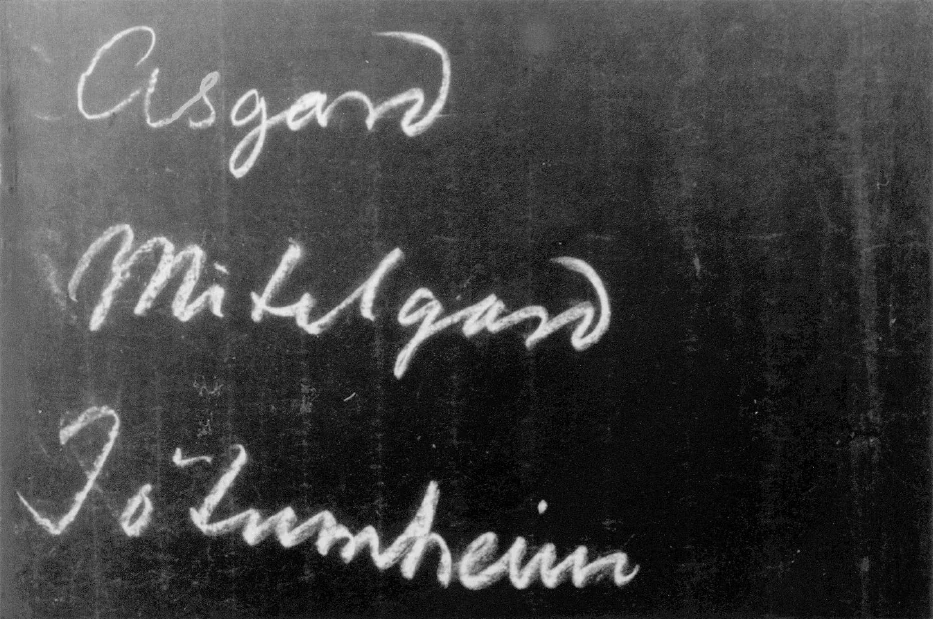 Asgard
Mitelgard
Jötunheim